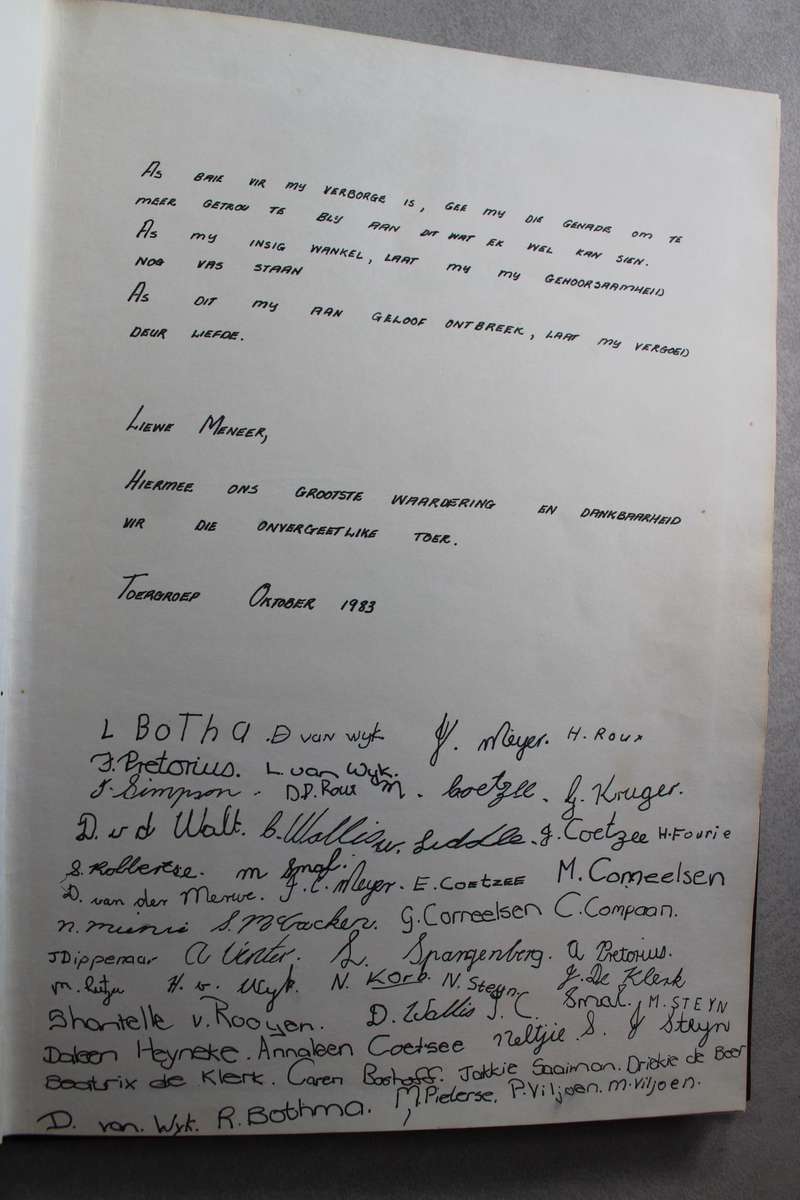 As baie vir my verborge is, gee my die genade om te
meer getrou te bly aan dit wat ek wel kan sien.
As my insig wankel, laat my my gehoorsaamheid
nog vas staan
As dit my aan geloof ontbreek, laat my vergoed
deur liefde.
Liewe Meneer,
Hiermee ons grootste waardering en dankbaarheid
vir die onvergeetlike toer.
Toergroep Oktober 1983
L Botha . D van Wyk Meyer. H. Roux
J. Pretorius. L. van Wyk.
J. Simpson. D.P. Roux M. Coetzee. G. Kruger.
D. v d Walt. Wallis W. Liddle. J. Coetzee H. Fourie
S. Robbertse. M Smal.
D. van der Merwe. J. C. Meyer. E. Coetzee M. Corneelsen
G. Corneelsen C. Compaan.
J Dippenaar A Venter. L. Spangenberg. A Pretorius.
H. v. Wyk. N. Korb. N. Steyn J. De Klerk
Shantelle v. Rooyen. D. Wallis J. C. Smal. M. STEYN
Daleen Heyneke. Annaleen Coetsee Neltjie S. J Steyn
Beatrix de Klerk. Caren Boshoff. Jakkie Saaiman. Driekie de Beer
D. van. Wyk. R. Bothma. M. Pieterse. P. Viljoen. M. Viljoen.